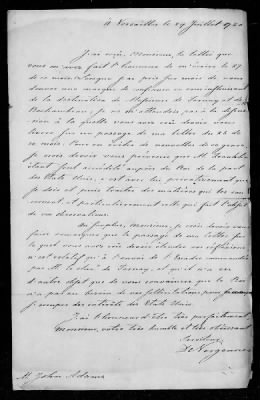 à Versailles le 29 Juillet 1780
J'ai reçu, Monsieur, la lettre que
vous m'avez fait l'honneur de m'écrire le 27
de ce mois. Lorsque j'ai pris sur moi de vous
donner une marque de confiance en vous
de la destination de Messieurs de Ternay et de
Rochambeau, je ne m'attendois pas à la
sion à la quelle vous avez crû devoir vous
livrer sur un passage de ma lettre du 20 de
ce mois. Pour en éviter de nouvelles de ce genre,
je crois devoir vous prévenir que M. Franklin
étant seul accrédité auprès du Roi de la part
des Etats Unis, c'est avec lui privativement que
je dois et puis traiter des matières qui les
nent et particulièrement celle qui fait l'objet
de vos observations.
Au surplus, monsieur, je crois devoir vous
faire remarquer que le passage de ma lettre sur
le quel vous avez crû devoir étendre vos réflexions
n'est relatif qu'à l'envoi de l'Escadre commandée
par M. le chev. de Ternay, et qu'il n'a eu
d'autre objet que de vous convaincre que le Roi
n'a pas eu besoin de vos sollicitations pour
s'occuper des intérêts des Etats Unis.
J'ai l'honneur d'être très parfaitement
Monsieur, votre très humble et très obéissant
Serviteur
De Vergennes
M. John Adams